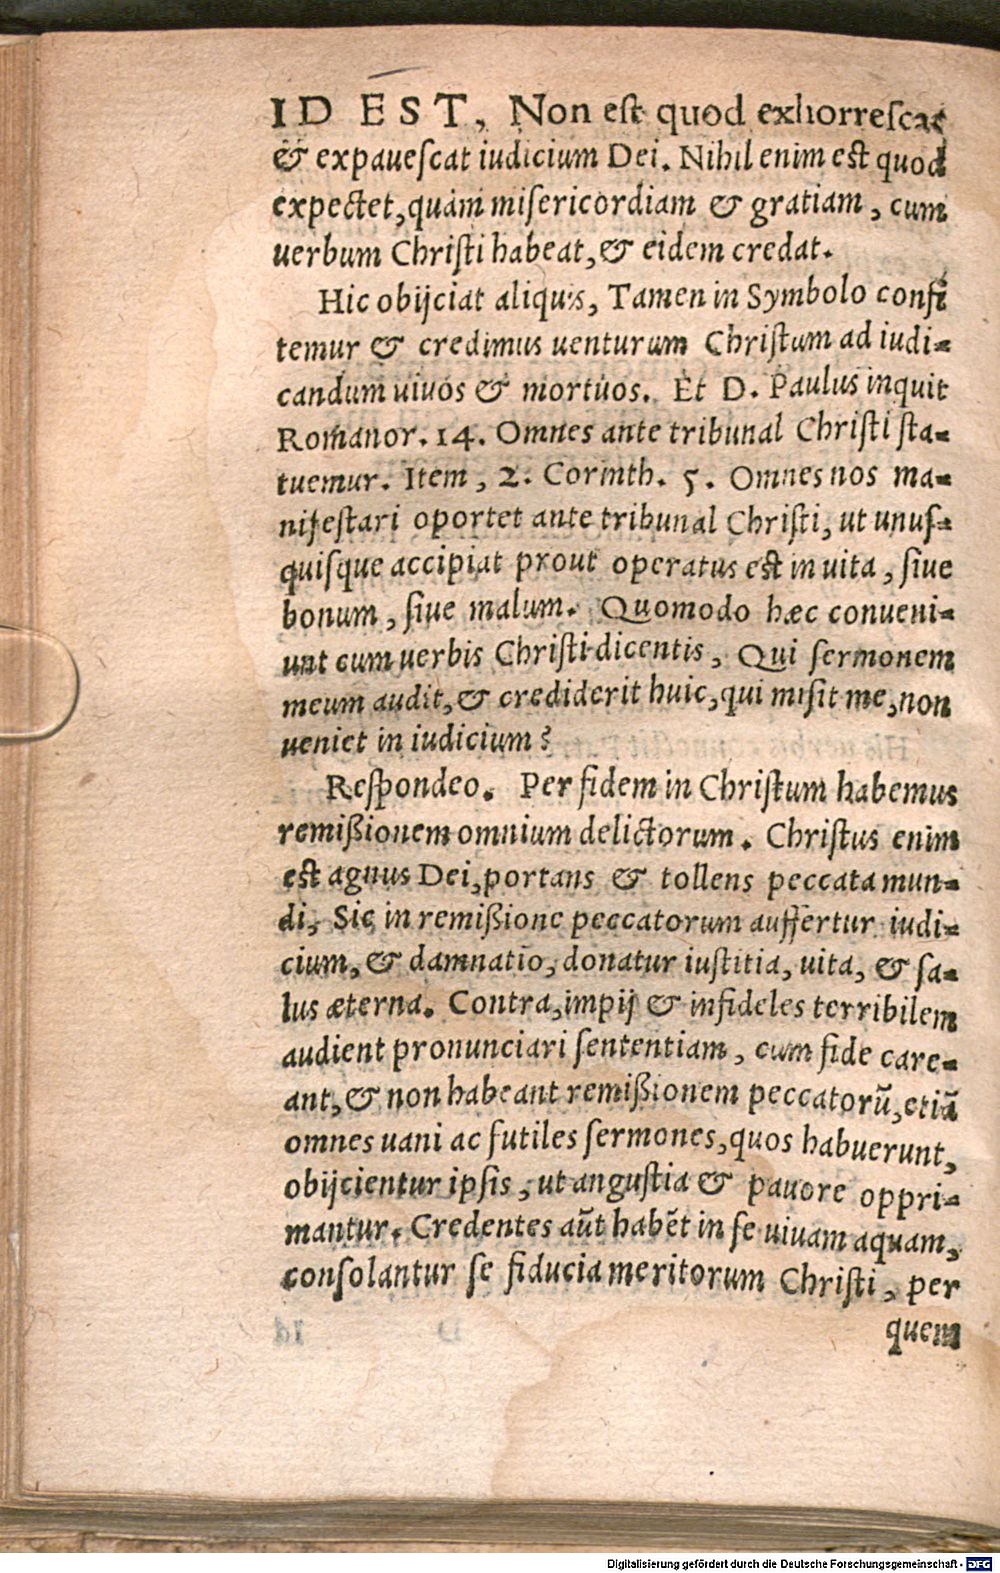 ID EST, Non est quod exhorrescat
& expauescat iudicium Dei. Nihil enim est quod
expectet, quàm misericordiam & gratiam, cum
uerbum Christi habeat, & eidem credat.
Hic obijciat aliquis, Tamen in Symbolo confi
temur & credimus uenturum Christum ad iudi=
candum uiuos & mortuos. Et D. Paulus inquit
Romanor. 14. Omnes ante tribunal Christi sta=
tuemur. Item, 2. Corinth. 5. Omnes nos ma=
nifestari oportet ante tribunal Christi, ut unus=
quisque accipiat prout operatus est in uita, siue
bonum, siue malum. Quomodo hæc conueni=
unt cum uerbis Christi dicentis, Qui sermonem
meum audit, & crediderit huic, qui misit me, non
ueniet in iudicium?
Respondeo. Per fidem in Christum habemus
remißionem omnium delictorum. Christus enim
est agnus Dei, portans & tollens peccata mun=
di, Sic in remißione peccatorum auffertur iudi=
cium, & damnatio, donatur iustitia, uita, & sa=
lus æterna. Contra, impij & infideles terribilem
audient pronunciari sententiam, cum fide care=
ant, & non habeant remißionem peccatorũ, etiã
omnes uani ac futiles sermones, quos habuerunt,
obijcientur ipsis, ut angustia & pauore oppri=
mantur. Credentes aũt habẽt in se uiuam aquam,
consolantur se fiducia meritorum Christi, per
quem
Digitalisierung gefördert durch die Deutsche Forschungsgemeinschaft - DFG